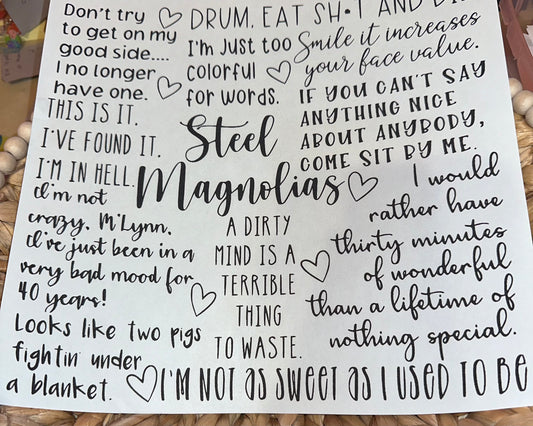 Don't try
to get on my
good side....
I no longer
have one.
DRUM, EAT SH•T AND
I'm Just too
colorful
for words.
Smile it increases
your face value.
IF YOU CAN'T SAY
ANYTHING NICE
ABOUT ANYBODY,
COME SIT BY ME.
THIS IS IT.
I'VE FOUND IT.
I'M IN HELL.
Steel
Magnolias
I'm not
crazy, M'Lynn,
I've just been in a
very bad mood for
40 years!
A DIRTY
MIND IS A
TERRIBLE
THING
TO WASTE.
I would
rather have
thirty minutes
of wonderful
than a lifetime of
nothing special.
Looks like two pigs
fightin' under
a blanket.
I'M NOT AS SWEET AS I USED TO BE